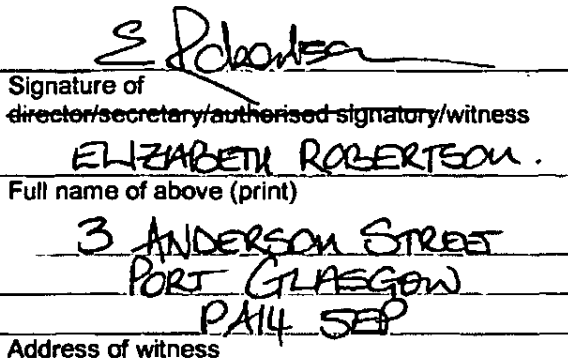 E Robertson
Signature of
director/secretary/authorised signatory/witness
ELIZABETH ROBERTSON.
Full name of above (print)
3 ANDERSON STREET
PORT GLASGOW
PA14 5EP
Address of witness